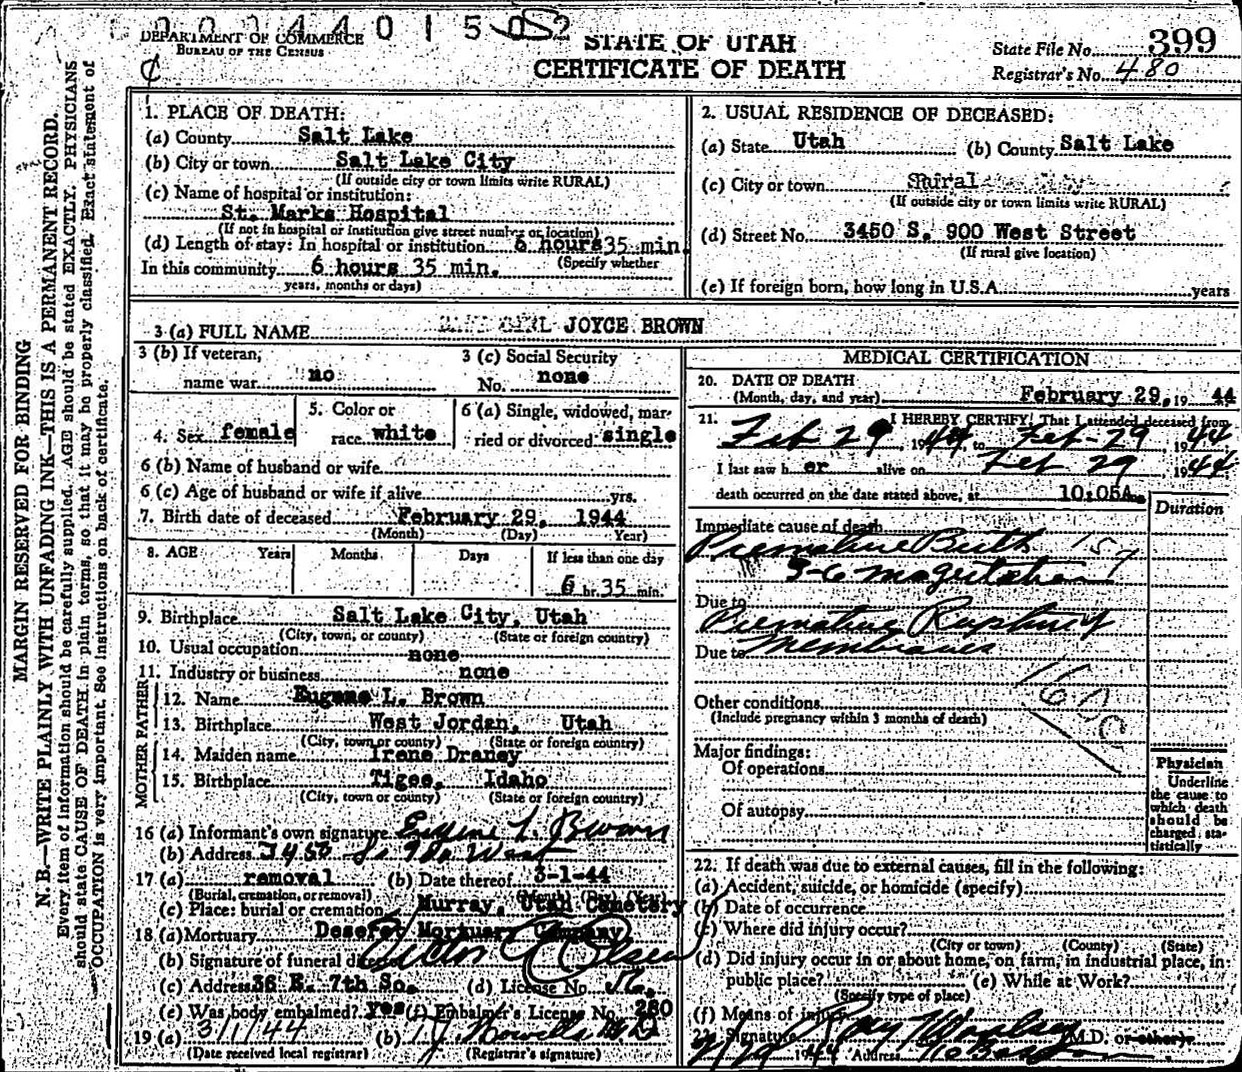 0 0 0 4 4 0 1 5 0 2
DEPARTMENT OF COMMERCE
BUREAU OF THE CENSUS
STATE OF UTAH
CERTIFICATE OF DEATH
State File No. 399
Registrar's No. 480
MARGIN RESERVED FOR BINDING
N. B.—WRITE PLAINLY WITH UNFADING INK—THIS IS A PERMANENT RECORD.
Every item of information should be carefully supplied. AGE should be stated EXACTLY. PHYSICIANS
should state CAUSE OF DEATH in plain terms, so that it may be properly classified. Exact statement of
OCCUPATION is very important. See instructions on back of certificate.
1. PLACE OF DEATH:
(a) County Salt Lake
(b) City or town Salt Lake City
(If outside city or town limits write RURAL)
(c) Name of hospital or institution:
St. Marks Hospital
(If not in hospital or institution give street number or location)
(d) Length of stay: In hospital or institution 6 hours 35 min.
(Specify whether
In this community 6 hours 35 min.
years, months or days)
2. USUAL RESIDENCE OF DECEASED:
(a) State Utah (b) County Salt Lake
(c) City or town Rural
(If outside city or town limits write RURAL)
(d) Street No. 3450 S. 900 West Street
(If rural give location)
(e) If foreign born, how long in U.S.A. years
3 (a) FULL NAME JOYCE BROWN
3 (b) If veteran, name war no
3 (c) Social Security No. none
4. Sex female
5. Color or race white
6 (a) Single, widowed, married or divorced single
6 (b) Name of husband or wife
6 (c) Age of husband or wife if alive yrs.
7. Birth date of deceased February 29, 1944
(Month) (Day) Year)
8. AGE Years Months Days If less than one day
6 hr. 35 min.
9. Birthplace Salt Lake City, Utah
(City, town, or county) (State or foreign country)
10. Usual occupation none
11. Industry or business none
FATHER
12. Name Eugene L. Brown
13. Birthplace West Jordan, Utah
(City, town or county) (State or foreign country)
MOTHER
14. Maiden name Irene Draney
15. Birthplace Tigee, Idaho
(City, town or county) (State or foreign country)
16 (a) Informant's own signature Eugene L. Brown
(b) Address 3450 So 900 West
17 (a) removal (b) Date thereof 3-1-44
(Burial, cremation, or removal) (Month) (Day) (Year)
(c) Place: burial or cremation Murray, Utah Cemetery
18 (a) Mortuary Deseret Mortuary Company
(b) Signature of funeral director Victor Olsen
(c) Address 36 E. 7th So. (d) License No.
(e) Was body embalmed? Yes (f) Embalmer's License No. 280
19 (a) 3/1/44 (b) M.D.
(Date received local registrar) (Registrar's signature)
MEDICAL CERTIFICATION
20. DATE OF DEATH
(Month, day, and year) February 29, 19 44
21. I HEREBY CERTIFY: That I attended deceased from
Feb 29, 1944 to Feb-29 1944
I last saw h er alive on Feb 29 1944
death occurred on the date stated above, at 10:05A m.
Duration
Immediate cause of death
Premature Birth 159
Due to
Premature Rupture of
Due to Membranes
Other conditions
(Include pregnancy within 3 months of death)
Major findings:
Of operations
Of autopsy
Physician
Underline
the cause to
which death
should be
charged sta-
tistically
22. If death was due to external causes, fill in the following:
(a) Accident, suicide, or homicide (specify)
(b) Date of occurrence
(c) Where did injury occur?
(City or town) (County) (State)
(d) Did injury occur in or about home, on farm, in industrial place, in
public place? (e) While at Work?
(Specify type of place)
(f) Means of injury
23. Signature Ray Woolsey M.D. or other
2/29 1944 Address